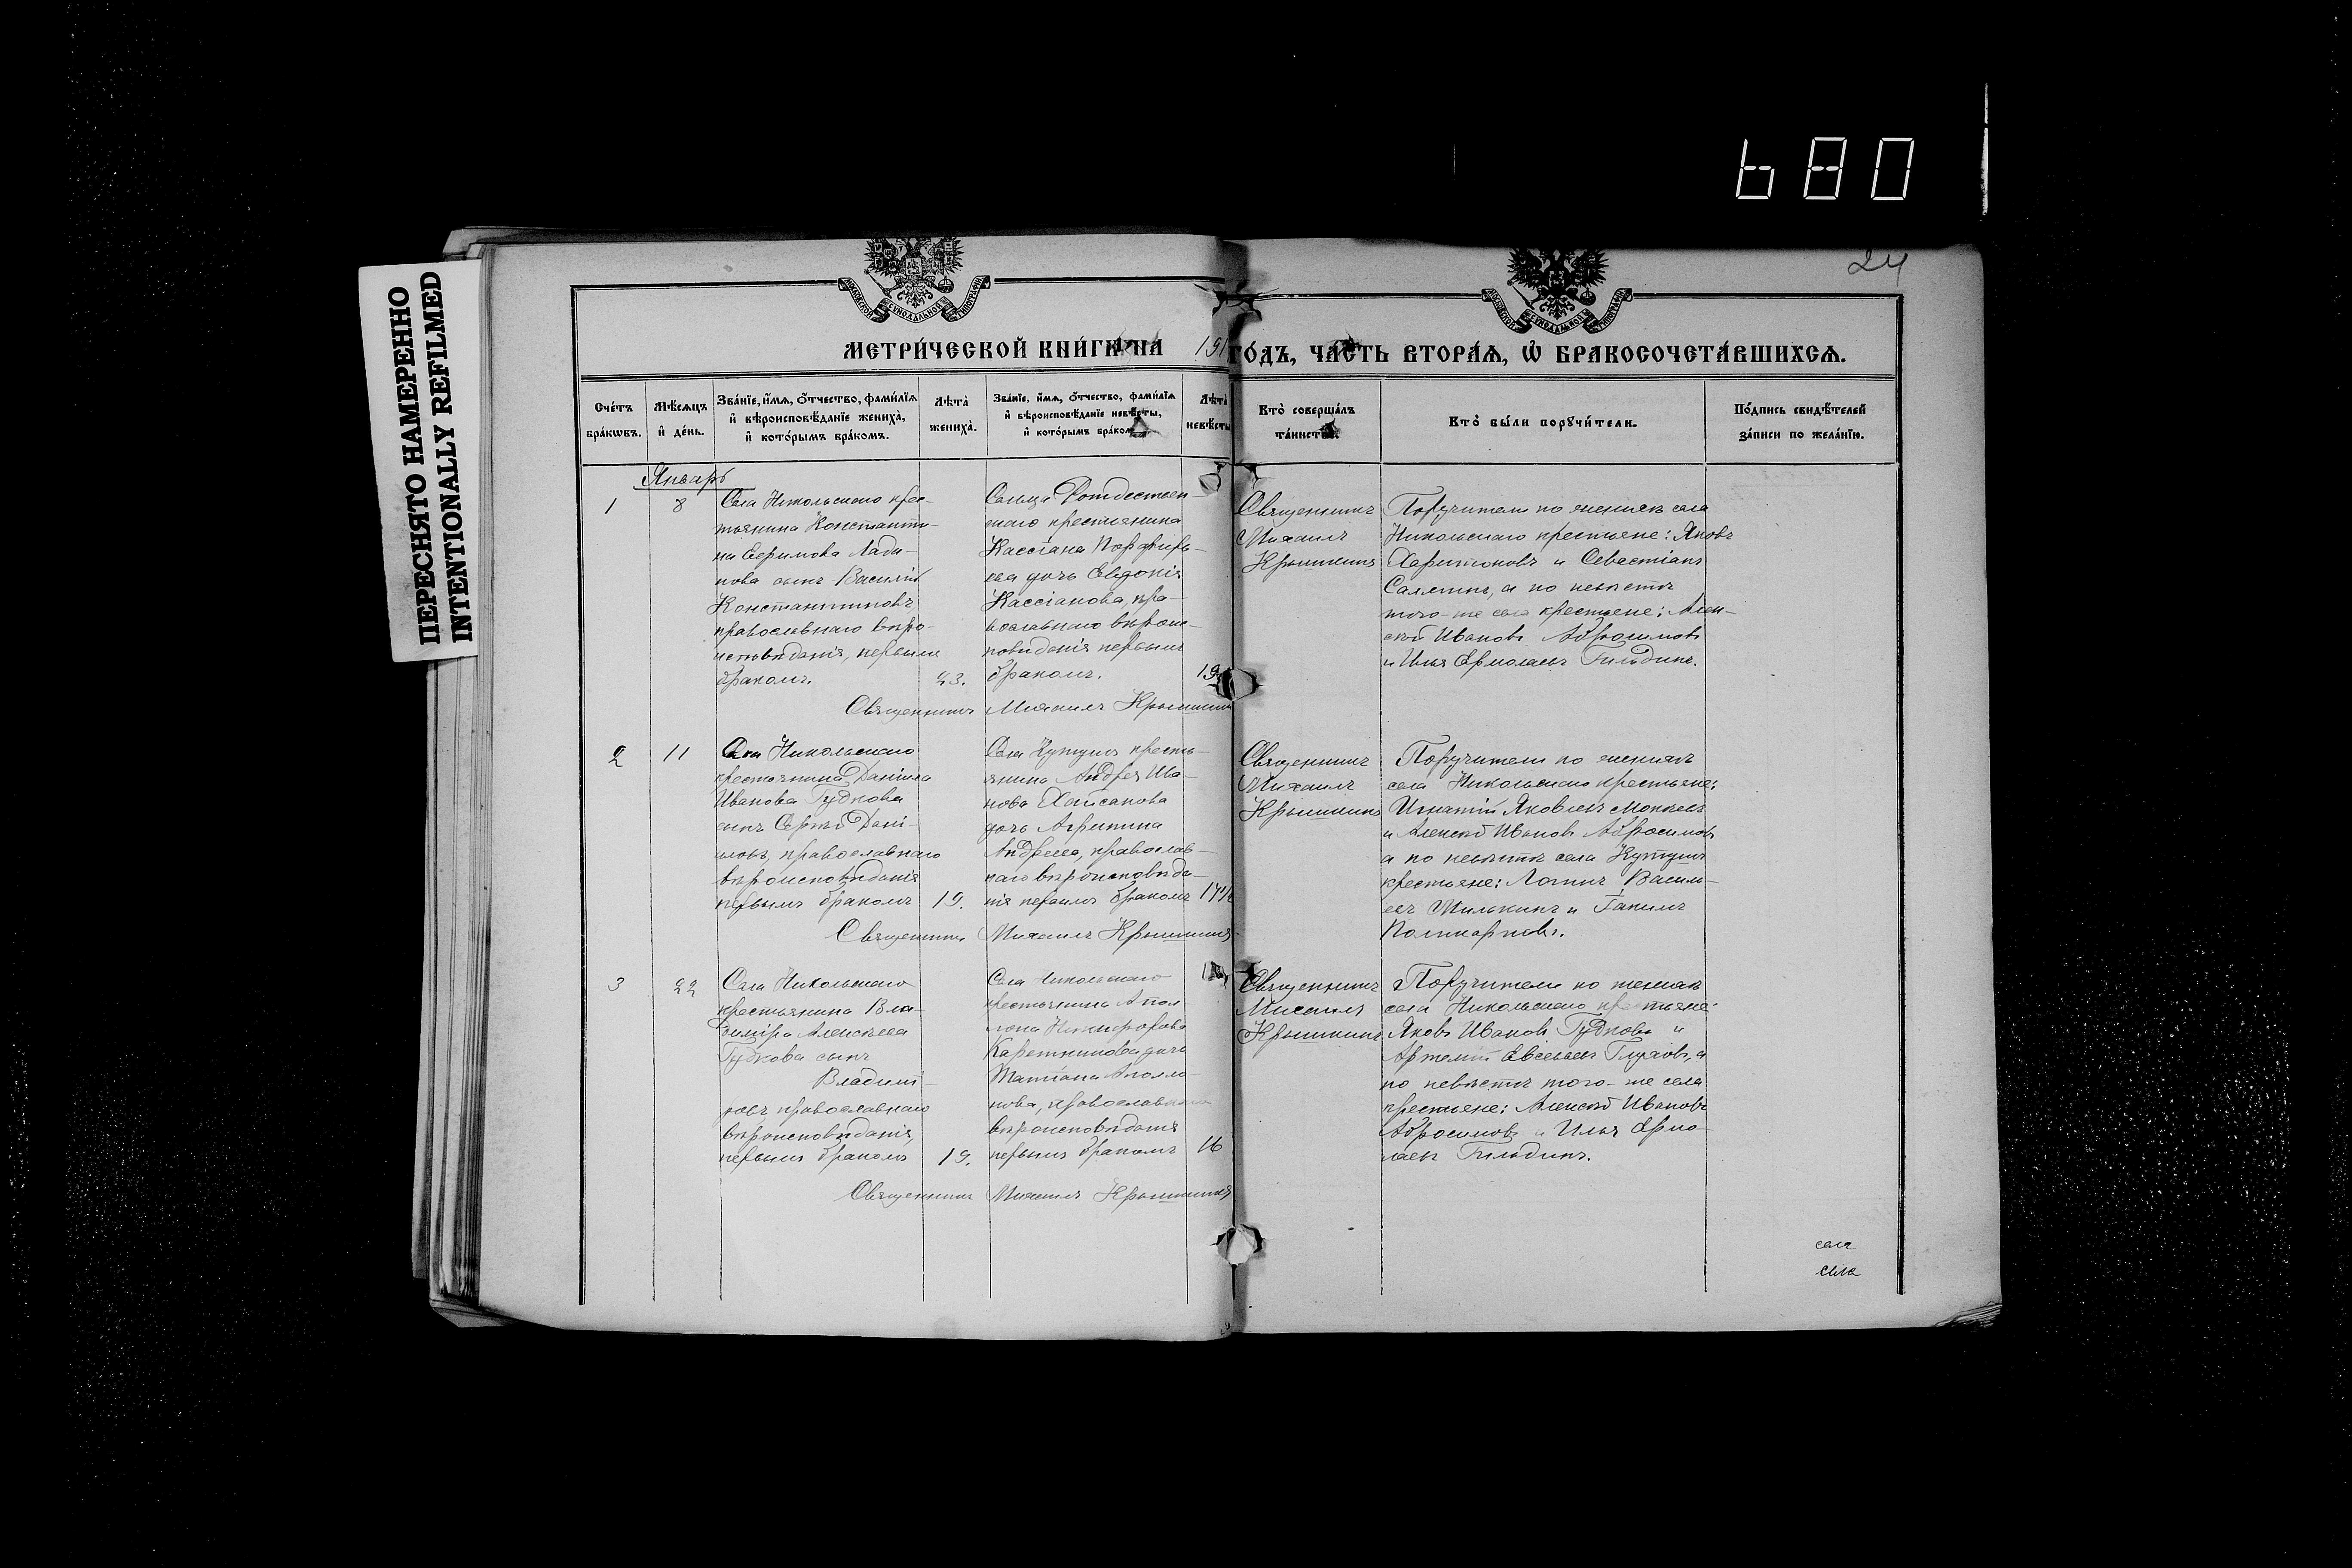 680
ПЕРЕСНЯТО НАМЕРЕННО
INTENTIONALLY REFILMED
24
МОСКОВСКОЙ СУНОДАЛЬНОЙ ТИПОГРАФІИ
МОСКОВСКОЙ СУНОДАЛЬНОЙ ТИПОГРАФІИ
МЕТРИ́ЧЕСКОЙ КНИ́ГИ НА 191
ГО́ДЪ, ЧА́СТЬ ВТОРА́Я, Ѡ҆ БРАКОСОЧЕТА́ВШИХСЯ.
Сче́тъ бра́кѡвъ.
Мѣ́сяцъ и҆ де́нь.
Зва́нїе, и҆́мя, ѻ҆́тчество, фами́лїя и҆ вѣроисповѣ́данїе жениха̀, и҆ кото́рымъ бра́комъ.
Лѣта̀ жениха̀.
Зва́нїе, и҆́мя, ѻ҆́тчество, фами́лїя и҆ вѣроисповѣ́данїе невѣ́сты, и҆ кото́рымъ бра́ком
Лѣта̀ невѣ́сты
Кто̀ соверша́лъ та́инств
Кто̀ бы́ли порꙋчи́тели.
По́дпись свидѣ́телей за́писи по жела́нїю.
Январь
1
8
Села Никольскаго крес-
тьянина Константи-
на Ефимова Лады-
нова сынъ Василій
Константиновъ,
православнаго вѣро-
исповѣданія, первымъ
бракомъ.
23.
Сельца Рождествен-
скаго крестьянина
Кассіана Порфирь-
ева дочь Евдокія
Кассіанова, пра-
вославнаго вѣроис-
повѣданія первымъ
бракомъ.
19
Священникъ Михаилъ Крышкинъ
Священникъ
Михаилъ
Крышкинъ
Поручители по женихѣ села
Никольскаго крестьяне: Яковъ
Харитоновъ и Севастіанъ
а по невѣстѣ
того-же села крестьяне: Алек-
сѣй Ивановъ Абросимовъ
и Илья Ермолаевъ Гильдинъ.
2
11
Села Никольскаго
крестьянина Даніила
Иванова Гудкова
сынъ Сергѣй Дані-
иловъ, православнаго
вѣроисповѣданія
первымъ бракомъ
19.
Села Кутушъ кресть-
янина Андрея Ива-
нова Хайсанова
дочь Агрипина
Андреева, православ-
наго вѣроисповѣда-
нія первымъ бракомъ
17½
Священникъ Михаилъ Крышкинъ
Священникъ
Михаилъ
Крышкинъ
Поручители по женихѣ
села Никольскаго крестьяне:
Игнатій Яковлевъ
и Алексѣй Ивановъ Абросимовъ
а по невѣстѣ села Кутушъ
крестьяне: Логинъ Василь-
евъ Милькинъ и
Поликарповъ.
3
22
Села Никольскаго
крестьянина Вла-
диміра Алексѣева
Гудкова сынъ
Владимі-
ровъ православнаго
вѣроисповѣданія,
первымъ бракомъ
19.
Села Никольскаго
крестьянина Апол
лона Никифорова
Каретникова дочь
Татіана Аполло-
нова, православнаго
вѣроисповѣданія
первымъ бракомъ
16
Священникъ Михаилъ Крышкинъ
Священникъ
Михаилъ
Крышкинъ
Поручители по женихѣ
села Никольскаго крестьяне:
Яковъ Ивановъ Гудковъ и
Артемій Евсеевъ Глуховъ, а
по невѣстѣ того-же села
крестьяне: Алексѣй Ивановъ
Абросимовъ и Илья Ермо-
лаевъ Гильдинъ.
села
села